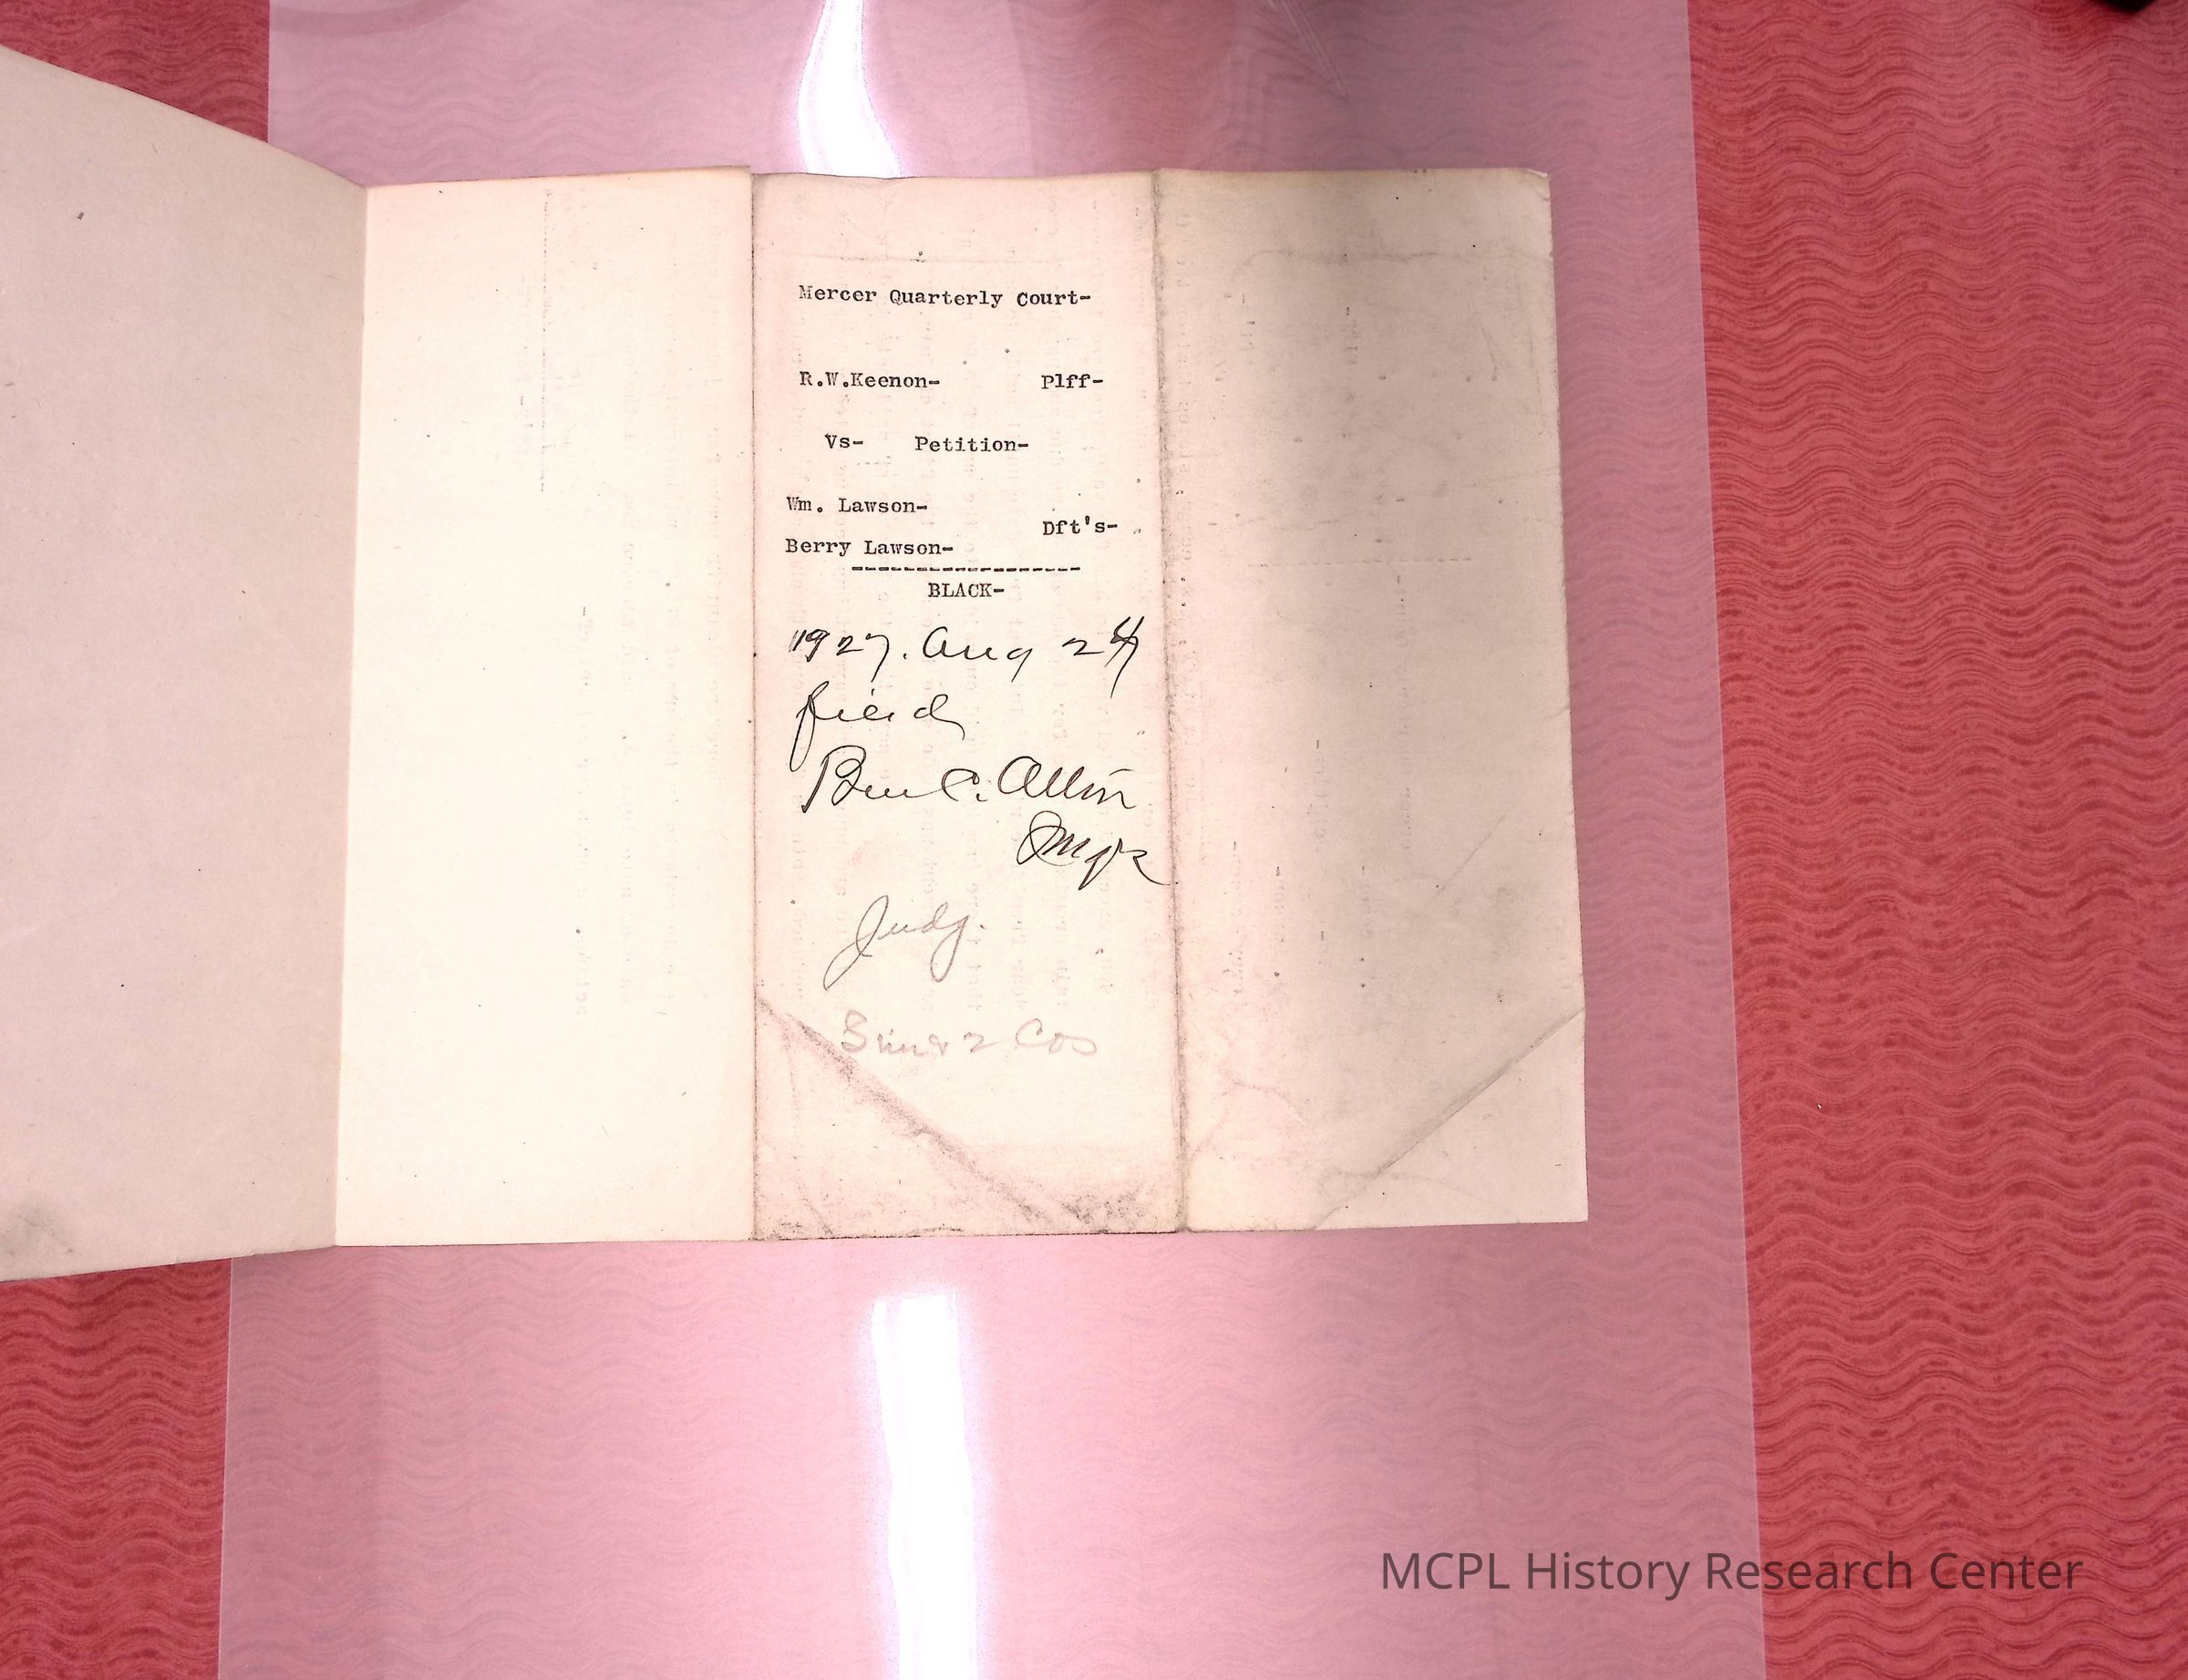 Mercer Quarterly Court-
R.W.Keenon- Plff-
Vs- Petition-
Wm. Lawson-
Dft's-
Berry Lawson-
-------------------
BLACK-
1927. Aug 24
filed
Ben C. Allin
Judg.
Cos
MCPL History Research Center